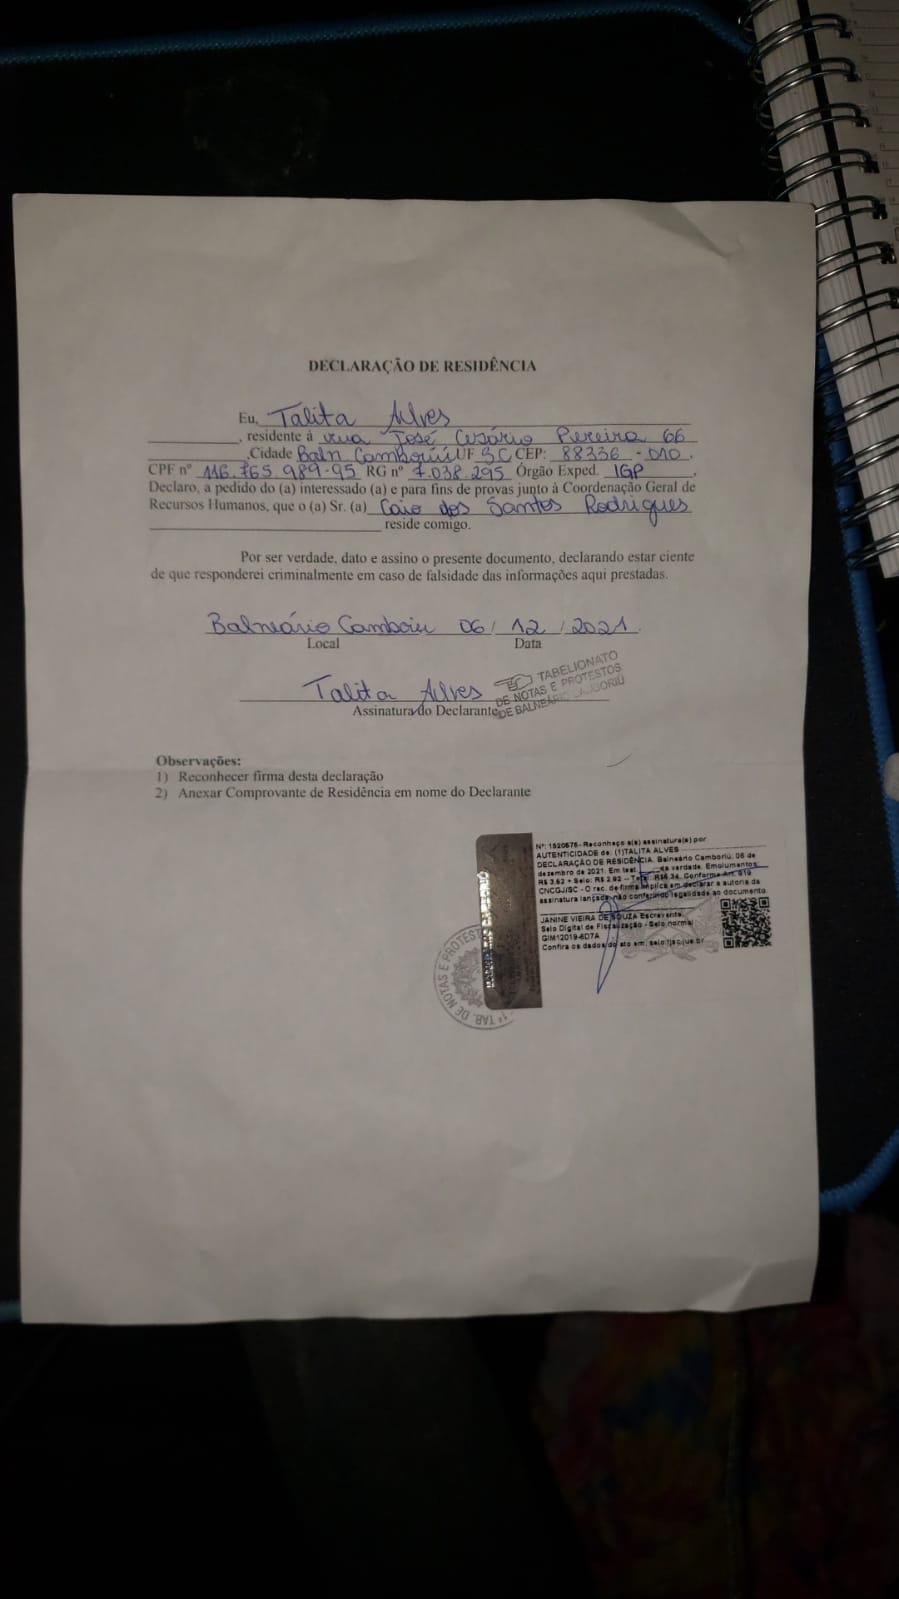 DECLARAÇÃO DE RESIDÊNCIA
Eu, Talita Alves
, residente à rua José Cesário Pereira 66
,Cidade Baln Camboriú UF SC CEP: 88336-010.
CPF nº 116.765.989-95 RG nº 7.038.295 Órgão Exped. IGP,
Declaro, a pedido do (a) interessado (a) e para fins de provas junto à Coordenação Geral de
Recursos Humanos, que o (a) Sr. (a) Caio dos Santos Rodrigues
reside comigo.
Por ser verdade, dato e assino o presente documento, declarando estar ciente
de que responderei criminalmente em caso de falsidade das informações aqui prestadas.
Balneário Camboriu 06/12/2021.
Local Data
Talita Alves
Assinatura do Declarante
TABELIONATO
DE NOTAS E PROTESTOS
DE BALNEÁRIO CAMBORIÚ
Observações:
1) Reconhecer firma desta declaração
2) Anexar Comprovante de Residência em nome do Declarante
Nº: 1520676- Reconheço a(s) assinatura(s) por
AUTENTICIDADE de: (1)TALITA ALVES
DECLARAÇÃO DE RESIDÊNCIA. Balneário Camboriú, 06 de
dezembro de 2021. Em test. da verdade. Emolumentos:
R$ 3,52 + Selo: R$ 2,82 -- Total: R$6,34. Conforme Art. 819
CNCGJ/SC - O rec. de firma implica em declarar a autoria da
assinatura lançada, não conferindo legalidade ao documento.
JANINE VIEIRA DE SOUZA Escrevente
Selo Digital de Fiscalização - Selo normal
GIM12019-6D7A
Confira os dados do ato em: selo.tjsc.jus.br
1º TAB. DE NOTAS E PROTEST